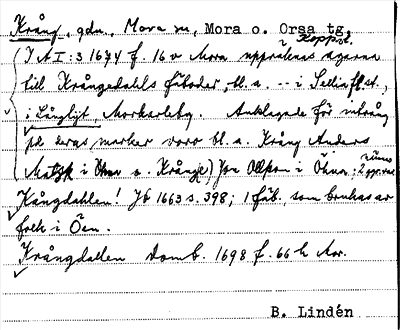 Krång, gdn., Mora sn, Mora o. Orsa tg.
Kopparb.
I AI:3 1674 f. 16 v Mora uppräknas ägarna
till Krångedahls fäboder, bl.a. -- i Sellin
i Långlijt, Morkarleby. Anklagade för intrång
på deras marker voro bl.a. Krång Anders
Matz i Öna o. Krånge) Jon Olsson i Öna;
Kångdahlen! Jb 1663 s. 398; 1 fäb. som brukas av
folk i Öen.
Krångdallen Domb. 1698 f. 66 h Mor.
B. Lindén